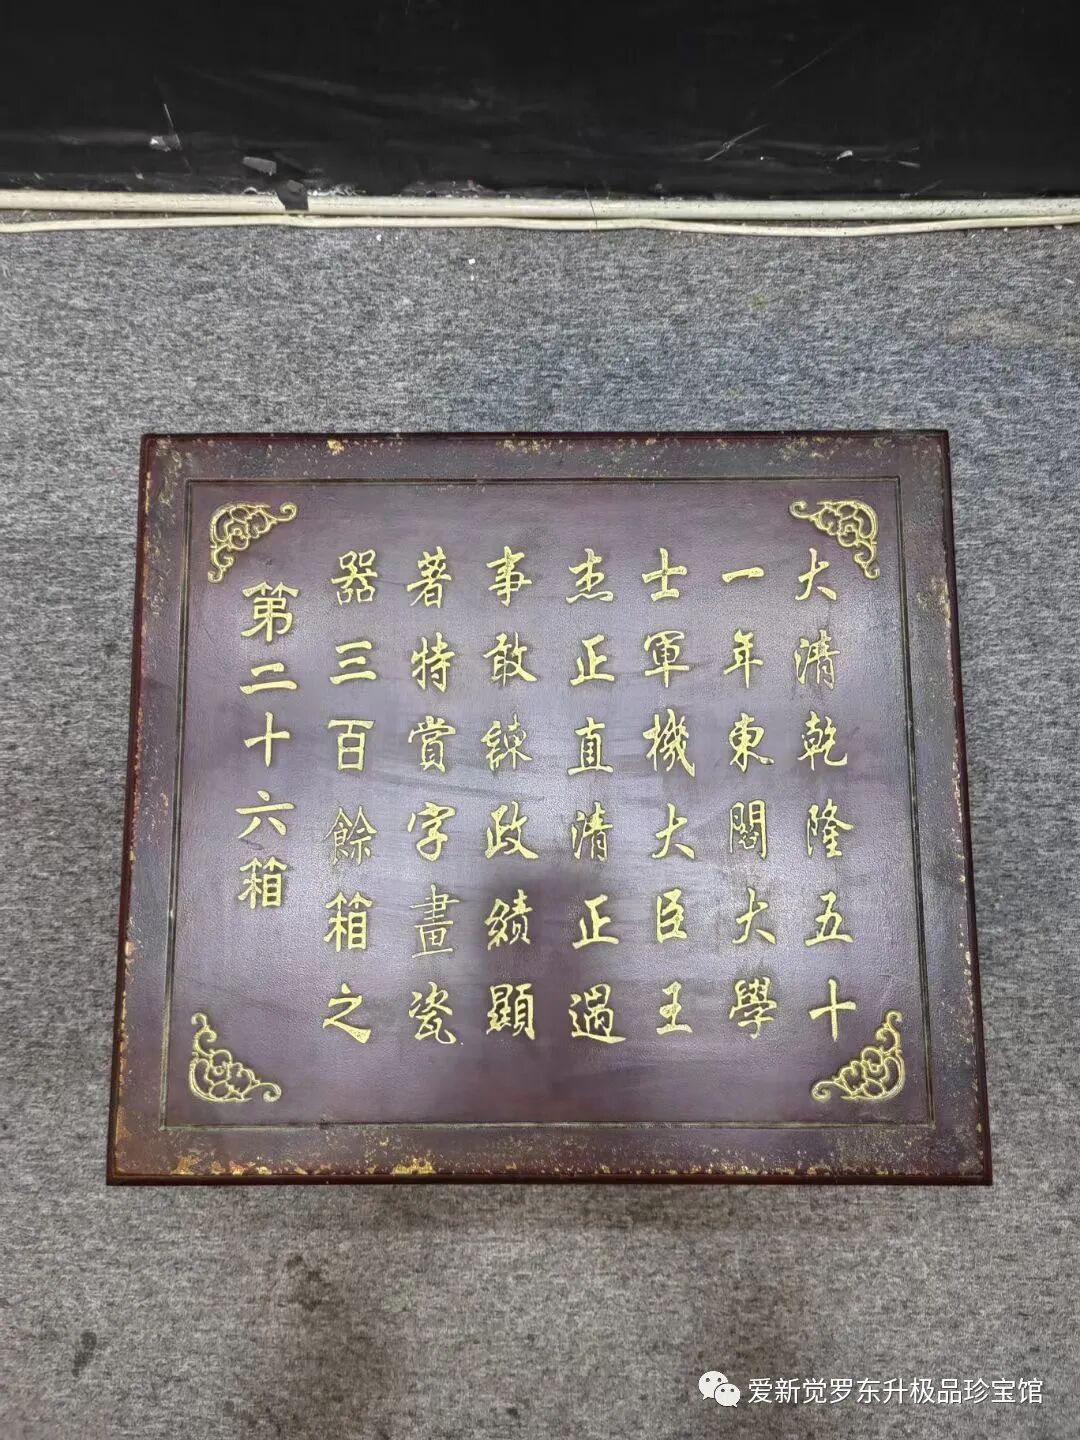 大清乾隆五十
一年東閣大學
士軍機大臣王
杰正直清正遇
事敢諫政績顯
著特賞字畫瓷
器三百餘箱之
第二十六箱
爱新觉罗东升极品珍宝馆